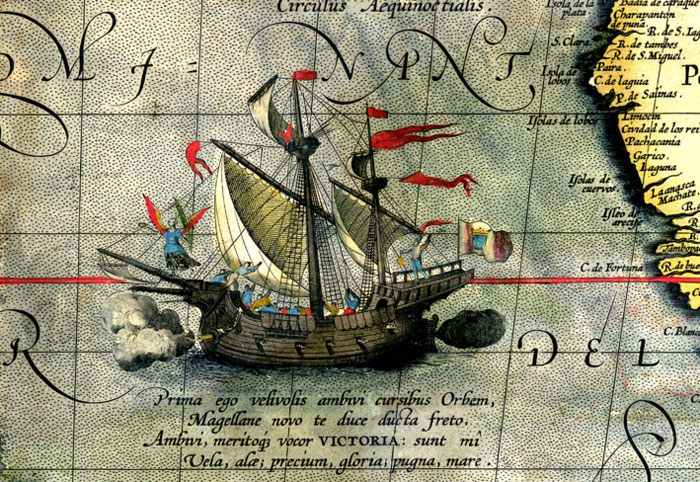 Circulus Aequinoctialis.
OMI- NANT
Isola de la
plata
Badia de caraque
Charapanton
de puna
R. de S. Iag
S. Clara
R. de tumbes
R. de S. Miguel.
Paira.
Isola de
lobos
C. de laguia
P. de Salinas.
Isolas de lobos
Limocin
Cividad de los rei
Pachacania
Garico.
Laguna
Isolas de
cuervos.
Lanasca
Machate.
Isleo de
arecife
R. d
R.
C. de Fortuna
R. de bue
C. Blanc
R DEL
Prima ego velivolis ambivi cursibus Orbem,
Magellane novo te duce ducta freto.
Ambivi, meritoq; vocor VICTORIA: sunt mî
Vela, alæ; precium, gloria; pugna, mare.